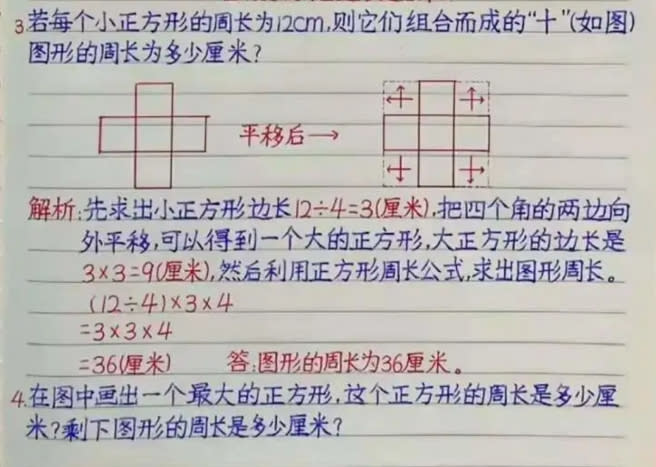 3.若每个小正方形的周长为12cm,则它们组合而成的“十”(如图)
图形的周长为多少厘米?
平移后→
解析:先求出小正方形边长12÷4=3(厘米),把四个角的两边向
外平移,可以得到一个大的正方形,大正方形的边长是
3×3=9(厘米),然后利用正方形周长公式,求出图形周长。
(12÷4)×3×4
=3×3×4
=36(厘米) 答:图形的周长为36厘米。
4.在图中画出一个最大的正方形,这个正方形的周长是多少厘
米?剩下图形的周长是多少厘米?